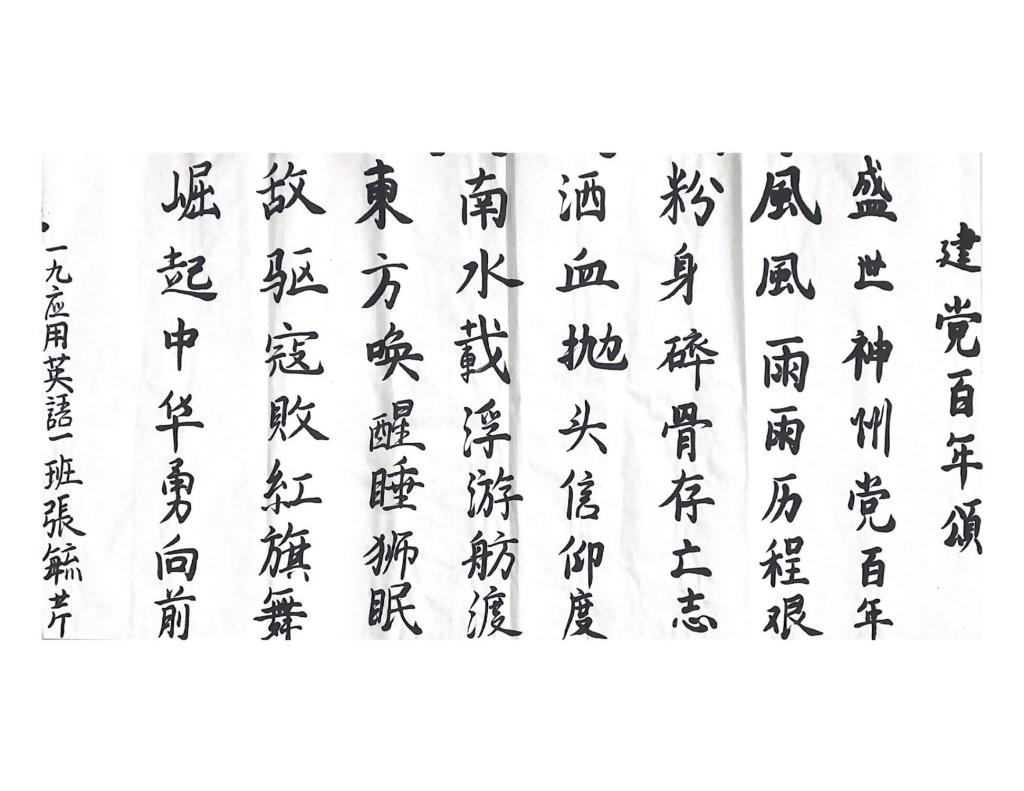 建党百年頌
盛世神州党百年
風風雨雨历程艰
粉身碎骨存亡志
洒血抛头信仰度
南水載浮游舫渡
東方唤醒睡狮眠
敌驱寇敗紅旗舞
崛起中华勇向前
一九应用英語一班張毓芹